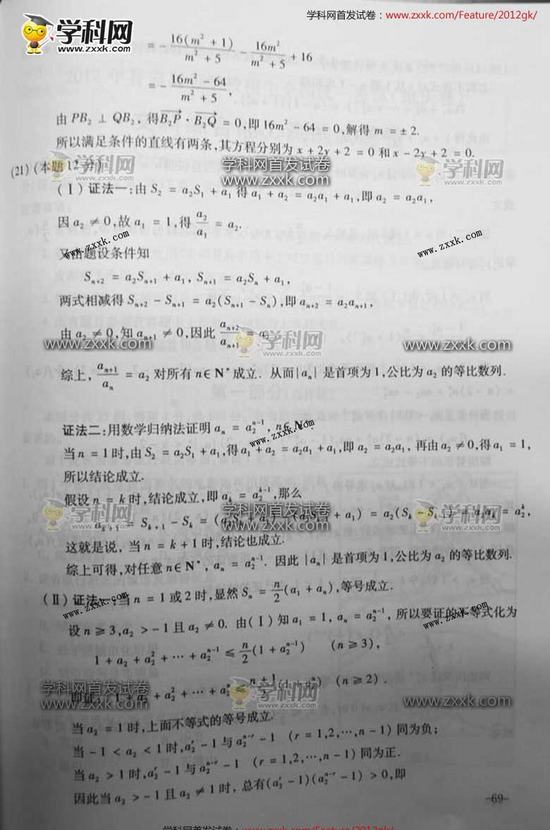 学科网首发试卷:www.zxxk.com/Feature/2012gk/
学科网
www.zxxk.com
= -16(m²+1)/(m²+5) - 16m²/(m²+5) + 16
= -(16m²-64)/(m²+5),
由 PB₂ ⊥ QB₂, 得 B₂P · B₂Q = 0, 即 16m² - 64 = 0, 解得 m = ±2.
所以满足条件的直线有两条,其方程分别为 x + 2y + 2 = 0 和 x - 2y + 2 = 0.
(21) (本题12分)
(Ⅰ) 证法一:由 S₂ = a₂S₁ + a₁ 得 a₁ + a₂ = a₂a₁ + a₁, 即 a₂ = a₂a₁,
因 a₂ ≠ 0, 故 a₁ = 1, 得 a₂/a₁ = a₂.
由题设条件知
Sₙ₊₂ = a₂Sₙ₊₁ + a₁, Sₙ₊₁ = a₂Sₙ + a₁,
两式相减得 Sₙ₊₂ - Sₙ₊₁ = a₂(Sₙ₊₁ - Sₙ), 即 aₙ₊₂ = a₂aₙ₊₁,
由 a₂ ≠ 0, 知 aₙ₊₁ ≠ 0, 因此 aₙ₊₂
学科网首发试卷 学科网 www.zxxk.com
综上, aₙ₊₁/aₙ = a₂ 对所有 n ∈ N* 成立. 从而{aₙ} 是首项为1,公比为 a₂ 的等比数列.
证法二:用数学归纳法证明 aₙ = a₂ⁿ⁻¹, n ∈ N
当 n = 1 时,由 S₂ = a₂S₁ + a₁, 得 a₁ + a₂ = a₂a₁ + a₁, 即 a₂ = a₂a₁, 再由 a₂ ≠ 0, 得 a₁ = 1,
所以结论成立.
假设 n = k 时,结论成立,即 aₖ = a₂ᵏ⁻¹, 那么
aₖ₊₁ = Sₖ₊₁ - Sₖ = (a₂Sₖ + a₁) - (a₂Sₖ₋₁ + a₁) = a₂(Sₖ - Sₖ₋₁) = a₂aₖ = a₂ᵏ,
学科网首发试卷 学科网 www.zxxk.com
这就是说,当 n = k + 1 时,结论也成立.
综上可得,对任意 n ∈ N*, aₙ = a₂ⁿ⁻¹. 因此 {aₙ} 是首项为1,公比为 a₂ 的等比数列.
(Ⅱ) 证法一:当 n = 1 或 2 时,显然 Sₙ = n/2(a₁ + aₙ), 等号成立.
设 n ≥ 3, a₂ > -1 且 a₂ ≠ 0. 由(Ⅰ)知 a₁ = 1, aₙ = a₂ⁿ⁻¹, 所以要证的不等式化为
1 + a₂ + a₂² + ⋯ + a₂ⁿ⁻¹ ≤ n/2(1 + a₂ⁿ⁻¹) (n ≥ 3),
即证 1 + a₂ + a₂² + ⋯ + a₂ⁿ ≤ n+1 (n ≥ 2).
学科网首发试卷 学科网 www.zxxk.com
当 a₂ = 1 时,上面不等式的等号成立.
当 -1 < a₂ < 1 时, a₂ʳ - 1 与 a₂ⁿ⁻ʳ - 1 (r = 1,2,⋯,n-1) 同为负;
当 a₂ > 1 时, a₂ʳ - 1 与 a₂ⁿ⁻ʳ - 1 (r = 1,2,⋯,n-1) 同为正.
因此当 a₂ > -1 且 a₂ ≠ 1 时, 总有(a₂ʳ - 1)(a₂ⁿ⁻ʳ - 1) > 0, 即
-69-
学科网首发试卷:www.zxxk.com/Feature/2012gk/